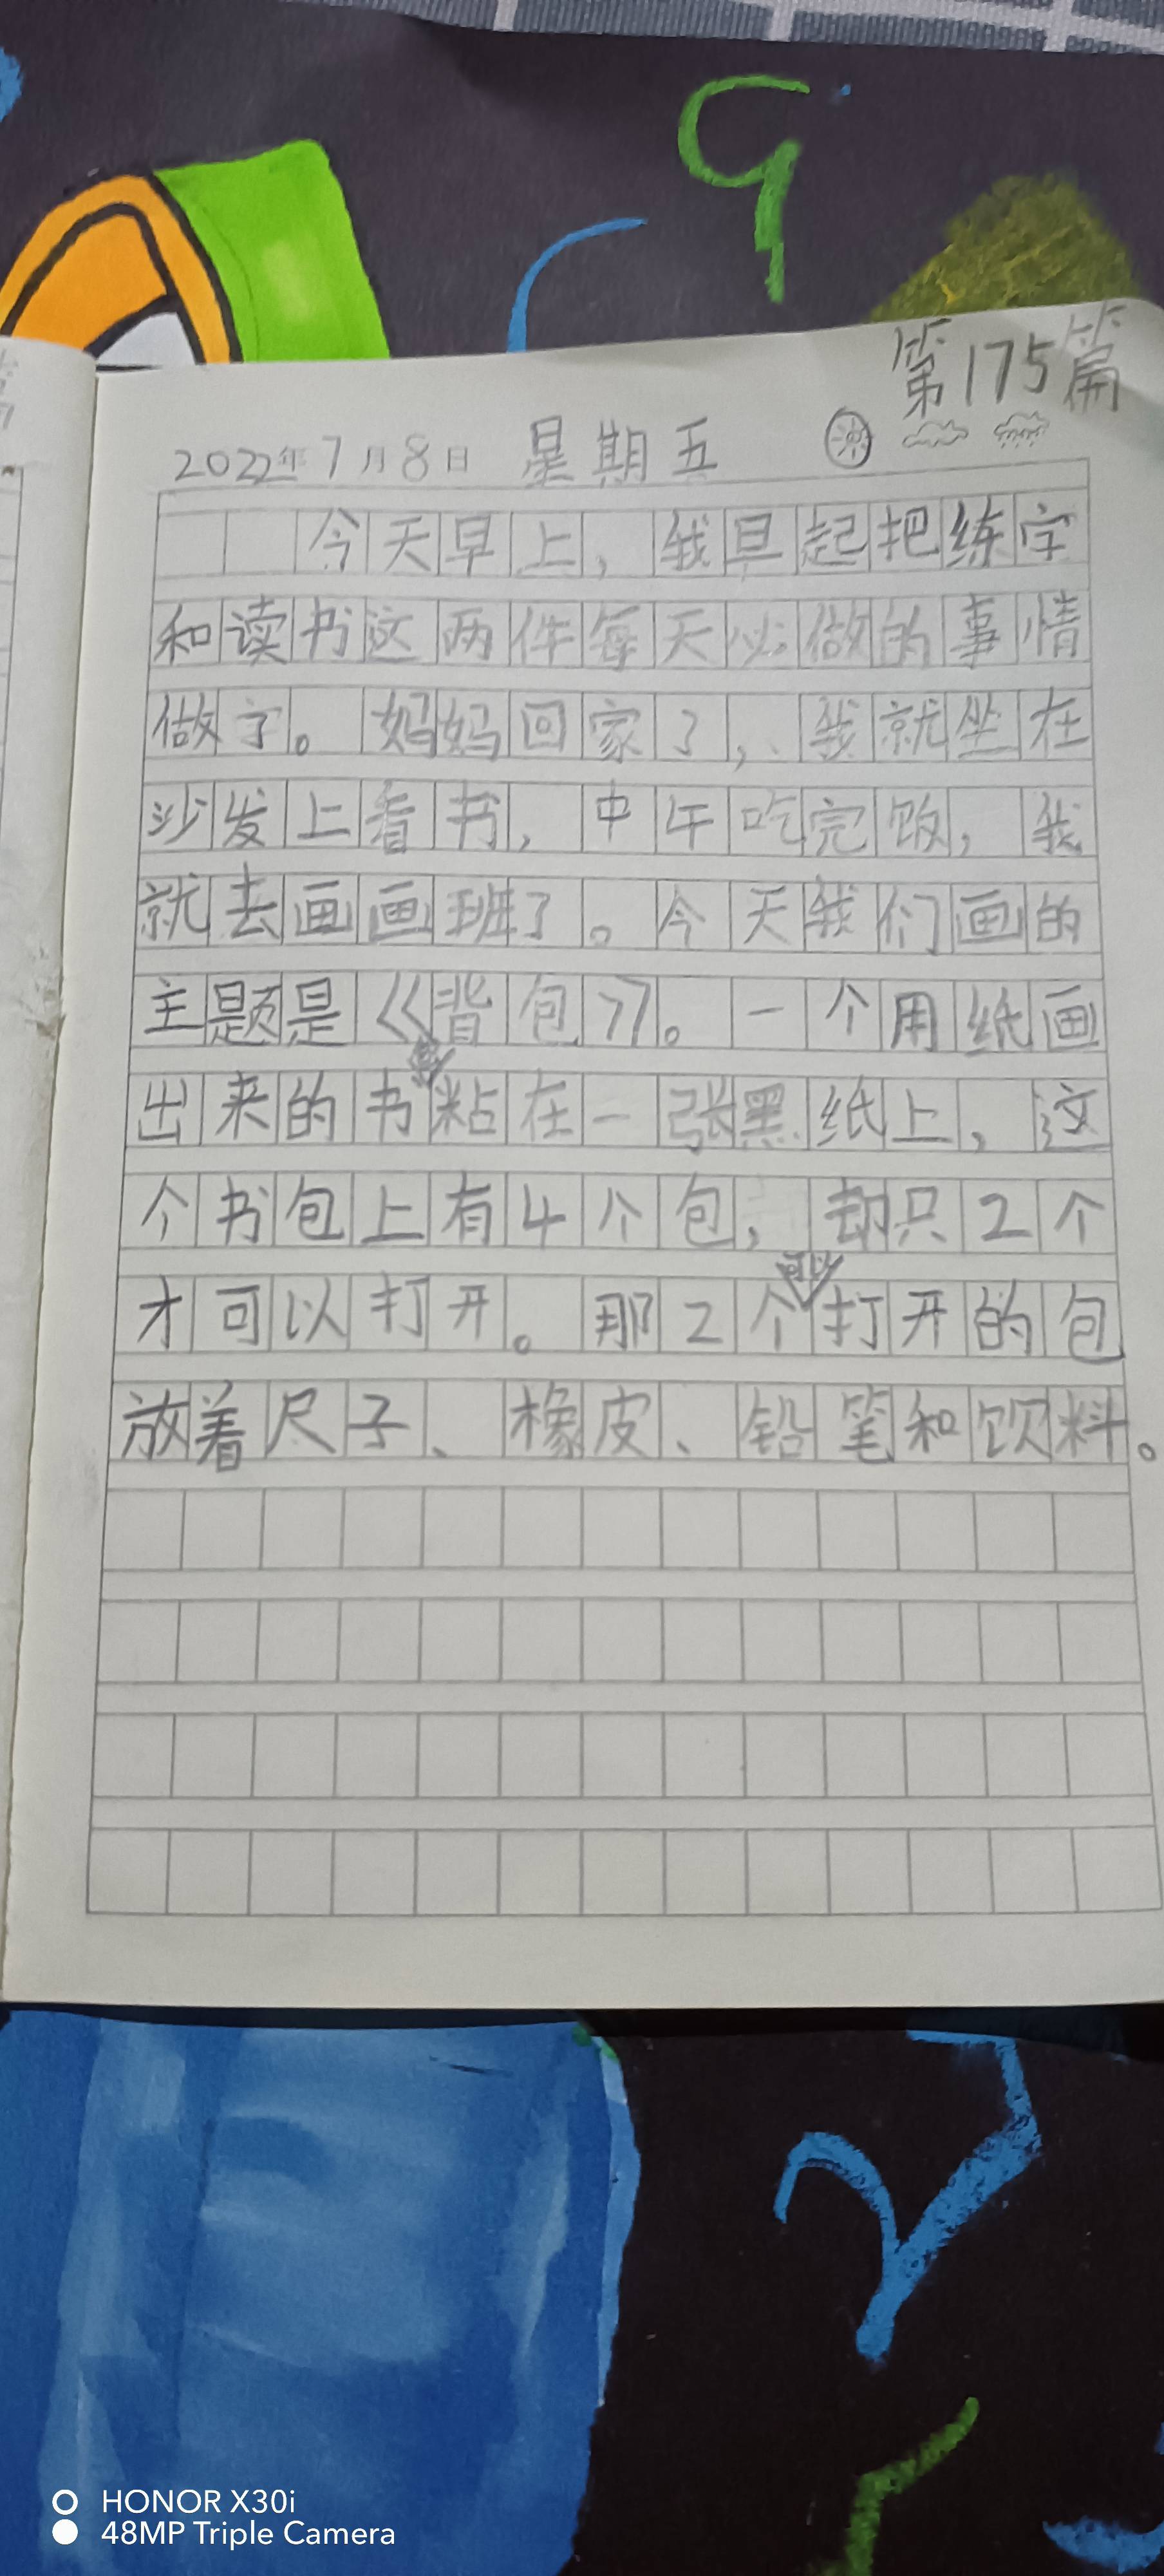 第175篇
2022年7月8日 星期五
今天早上，我早起把练字
和读书这两件每天必做的事情
做了。妈妈回家了，我就坐在
沙发上看书，中午吃完饭，我
就去画画班了。今天我们画的
主题是《背包》。一个用纸画
出来的书包粘在一张黑纸上，这
个书包上有4个包，却只2个
才可以打开。那2个可以打开的包
放着尺子、橡皮、铅笔和饮料。
HONOR X30i
48MP Triple Camera